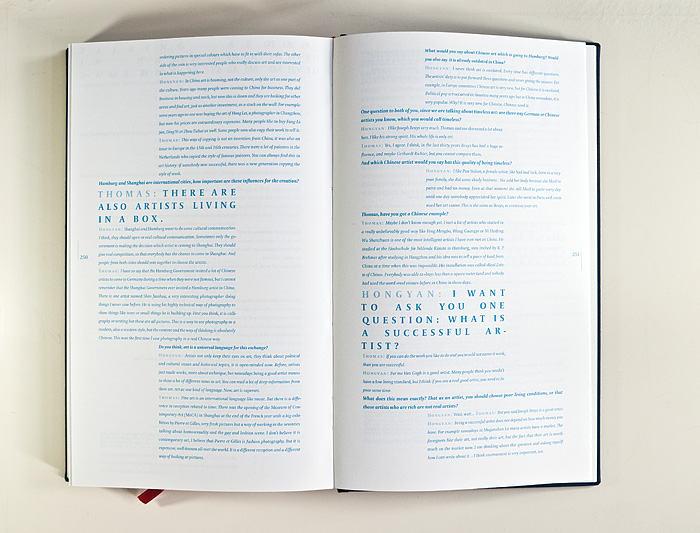 ordering pictures in special colours which have to fit in with their sofas. The other
side of the coin is very interested people who really discuss art and are interested
in what is happening here.
HONGYAN: In China art is booming, not the culture, only the art as one part of
the culture. Years ago many people were coming to China for business. They did
business in housing and tech, but now this is down and they are looking for other
areas and find art, just as another investment, as a stock on the wall. For example
some years ago no one was buying the art of Hong Lei, a photographer in Changzhou,
but now his prices are extraordinary expensive. Many people like to buy Fang Li
Jun, Ding Yi or Zhou Tiehai as well. Some people now also copy their work to sell it.
THOMAS: This way of copying is not an invention from China, it was also an
issue in Europe in the 15th and 16th centuries. There were a lot of painters in the
Netherlands who copied the style of famous painters. You can always find this in
art history: if somebody was successful, there was a new generation copying the
style of work.
Hamburg and Shanghai are international cities, how important are these influences for the creation?
THOMAS: THERE ARE
ALSO ARTISTS LIVING
IN A BOX.
HONGYAN: Shanghai and Hamburg want to do some cultural communication.
I think, they should open or real cultural communication. Sometimes only the go-
vernment is making the decision which artist is coming to Shanghai. They should
give real competition, so that everybody has the chance to come to Shanghai. And
people from both cities should vote together to choose the artists.
THOMAS: I have to say that the Hamburg Government invited a lot of Chinese
artists to come to Germany during a time when they were not famous, but I cannot
remember that the Shanghai Government ever invited a Hamburg artist in China.
There is one artist named Shen Jianhua, a very interesting photographer doing
things I never saw before. He is using his highly technical way of photography to
show things like trees or small things he is building up. First you think, it is calli-
graphy or writing but these are all pictures. This is a way to see photography as a
modern, also a western style, but the content and the way of thinking is absolutely
Chinese. This was the first time I saw photography in a real Chinese way.
250
Do you think, art is a universal language for this exchange?
HONGYAN: Artists not only keep their eyes on art, they think about political
and cultural issues and historical topics, it is open-minded now. Before, artists
just made works, more about technique, but nowadays being a good artist means
to think a lot of different ways in art. You can read a lot of deep information from
their art. Art as one kind of language. Now, art is superstar.
THOMAS: Fine art is an international language like music. But there is a diffe-
rence in reception related to time. There was the opening of the Museum of Con-
temporary Art (MoCA) in Shanghai at the end of the French year with a big exhi-
bition by Pierre et Gilles, very fresh pictures but a way of working in the seventies
talking about homosexuality and the gay and lesbian scene. I don't believe it is
contemporary art, I believe that Pierre et Gilles is fashion photography. But it is
expensive, well-known all over the world. It is a different reception and a different
way of looking at pictures.
What would you say about Chinese art which is going to Hamburg? Would
you also say, it is already outdated in China?
HONGYAN: I never think art is outdated. Every time has different questions.
The artists' duty is to put forward these questions and worn going the answer. For
example, in Europe sometimes Chinese art is very new, but for Chinese it is outdated.
Political pop is traditional in America many years ago but in China nowadays, it is
very popular. Why? It is very new for Chinese, Chinese need it.
One question to both of you, since we are talking about timeless art: are there any German or Chinese
artists you know, which you would call timeless?
HONGYAN: I like Joseph Beuys very much. Thomas and me discussed a lot about
him. I like his strong spirit. His whole life is only art.
THOMAS: Yes, I agree. I think, in the last thirty years Beuys has had a huge in-
fluence, and maybe Gerhardt Richter, but you cannot compare them.
And which Chinese artist would you say has this quality of being timeless?
HONGYAN: I like Pan Yuliang, a female artist. She had bad luck, born in a very
poor family, she did some shady business. You sold her body because she liked to
paint and had no money. Even at that moment she still liked to paint every day
until one day somebody appreciated her spirit. Later she went to Paris with some-
one and her art career. This is the same as Beuys, to continue your art.
Thomas, have you got a Chinese example?
THOMAS: Maybe I don't know enough yet. I met a lot of artists who started in
a really unbelievably good way like Yang Mengbo, Wang Guangyi or Ni Haifeng.
Wu Shanzhuan is one of the most intelligent artists I have ever met in China. He
studied at the Hochschule für bildende Künste in Hamburg, was invited by K. P.
Brehmer after studying in Hangzhou and his idea was to sell a piece of land from
China at a time when this was impossible.
in China. Everybody was able to obtain less than a square metre land and nobody
had used the word small visions before in China in those days.
251
HONGYAN: I WANT
TO ASK YOU ONE
QUESTION: WHAT IS
A SUCCESSFUL AR-
TIST?
THOMAS: If you can do the work you like to do and you would not name it work,
than you are successful.
HONGYAN: For me Van Gogh is a good artist. Many people think you needn't
have a low living standard, but I think if you are a real good artist, you need to be
poor some time.
What does this mean exactly? That as an artist, you should choose poor living conditions, or that
those artists who are rich are not real artists?
HONGYAN: Well, wait... THOMAS: But you said Joseph Beuys is a good artist.
HONGYAN: Being a successful artist does not depend on how much money you
have. For example nowadays in Moganshan Lu many artists have a market. The
foreigners like their art, not really their art, but the fact that their art is worth
much on the market now. I am thinking about this question and asking myself
how I can write about it... I think environment is very important, too.